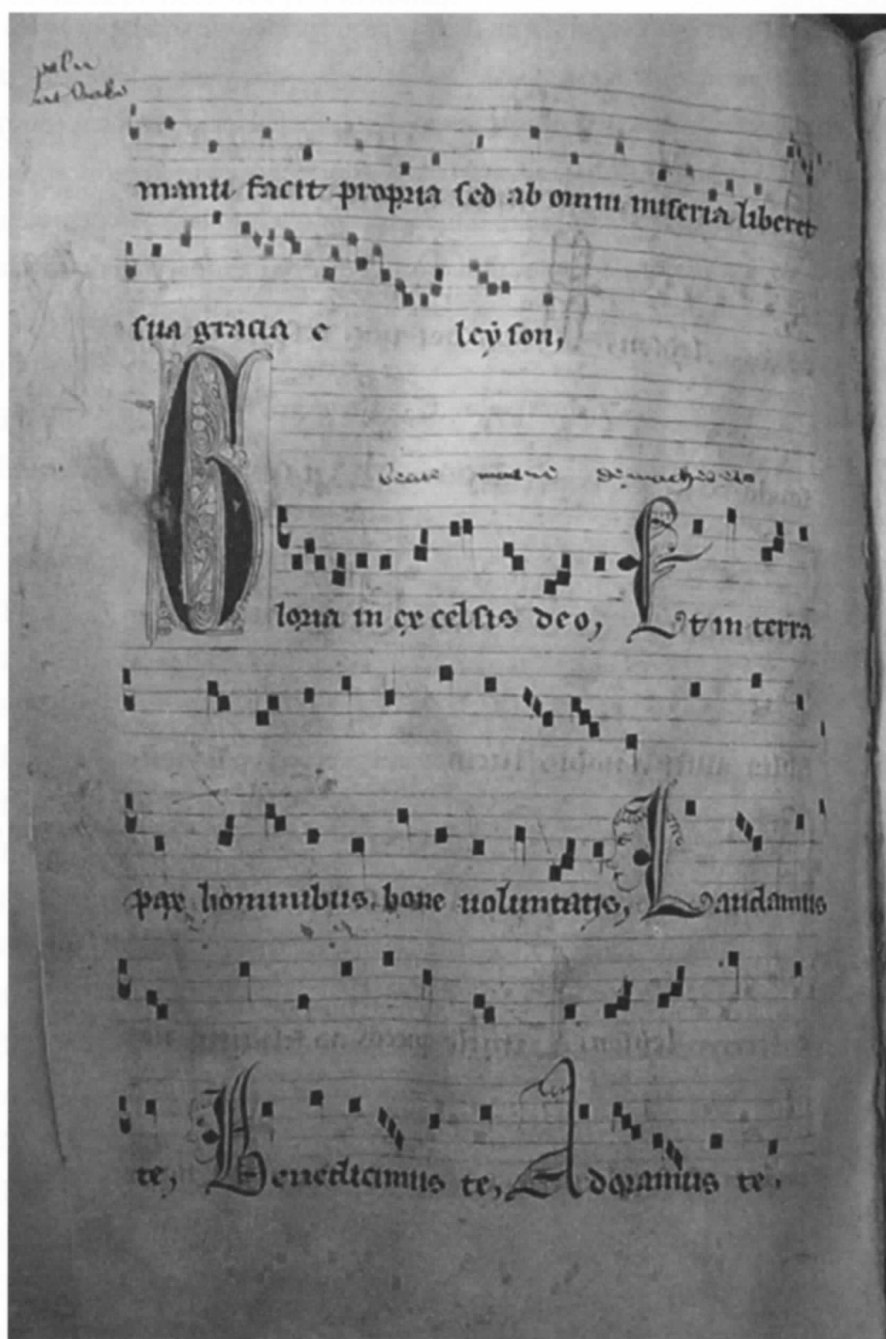 manu facit propria sed ab omni miseria liberet
sua gracia e leyson,
Gloria in excelsis deo, Et in terra
pax hominibus bone uoluntatis, Laudamus
te, Benedicimus te, Adoramus te.